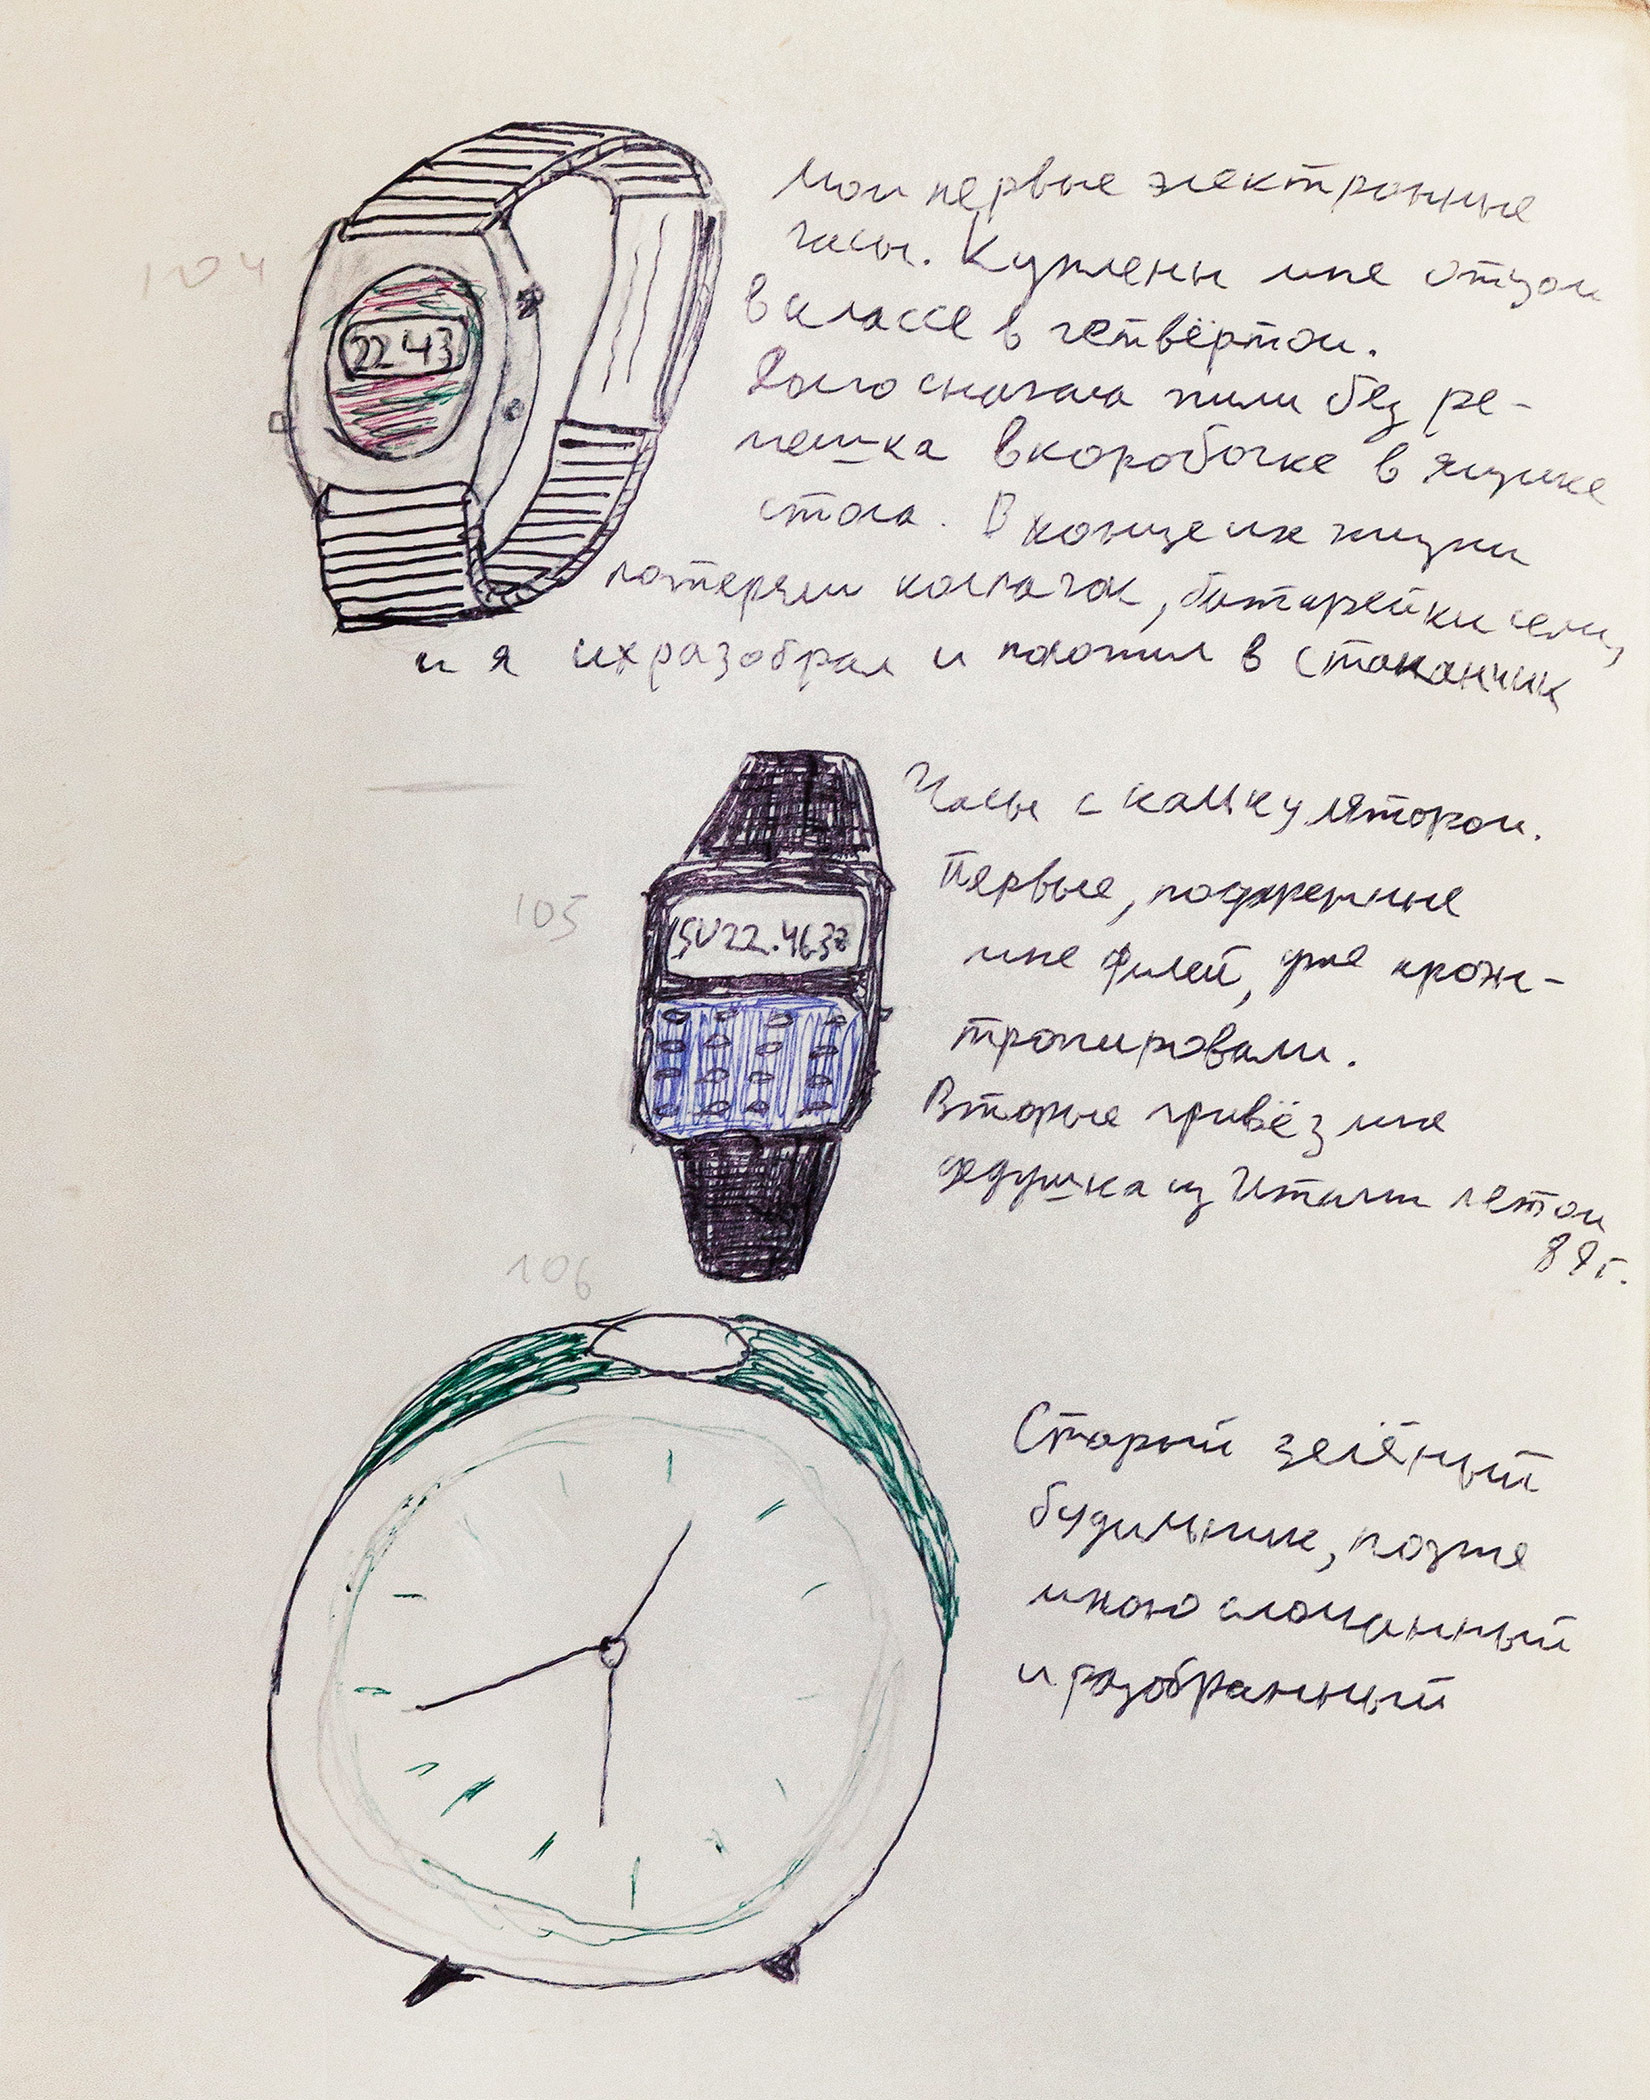 104
22 43
Мои первые электронные
часы. Куплены мне отцом
в классе в четвёртом.
Долго сначала жили без ре-
мешка в коробочке в ящике
стола. В конце их жизни
потеряли колпачок, батарейки сели,
и я их разобрал и положил в стаканчик
105
SU 22.46 38
Часы с калькулятором.
Первые, подаренные
мне Филей, уже
тропировали.
Вторые привёз мне
дедушка из Италии летом
89г.
106
Старый зелёный
будильник, позже
мною сломанный
и разобранный